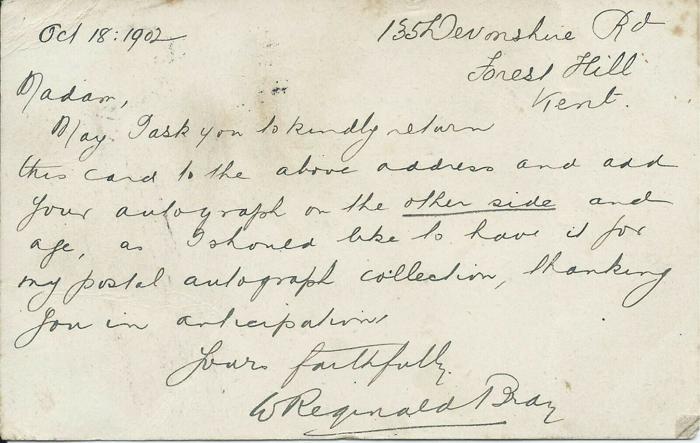 Oct 18: 1902
135 Devonshire Rd
Forest Hill
Kent.
Madam,
May I ask you to kindly return
this card to the above address and add
your autograph on the other side and
age, as I should like to have it for
my postal autograph collection, thanking
you in anticipation
Yours faithfully
W Reginald Bray